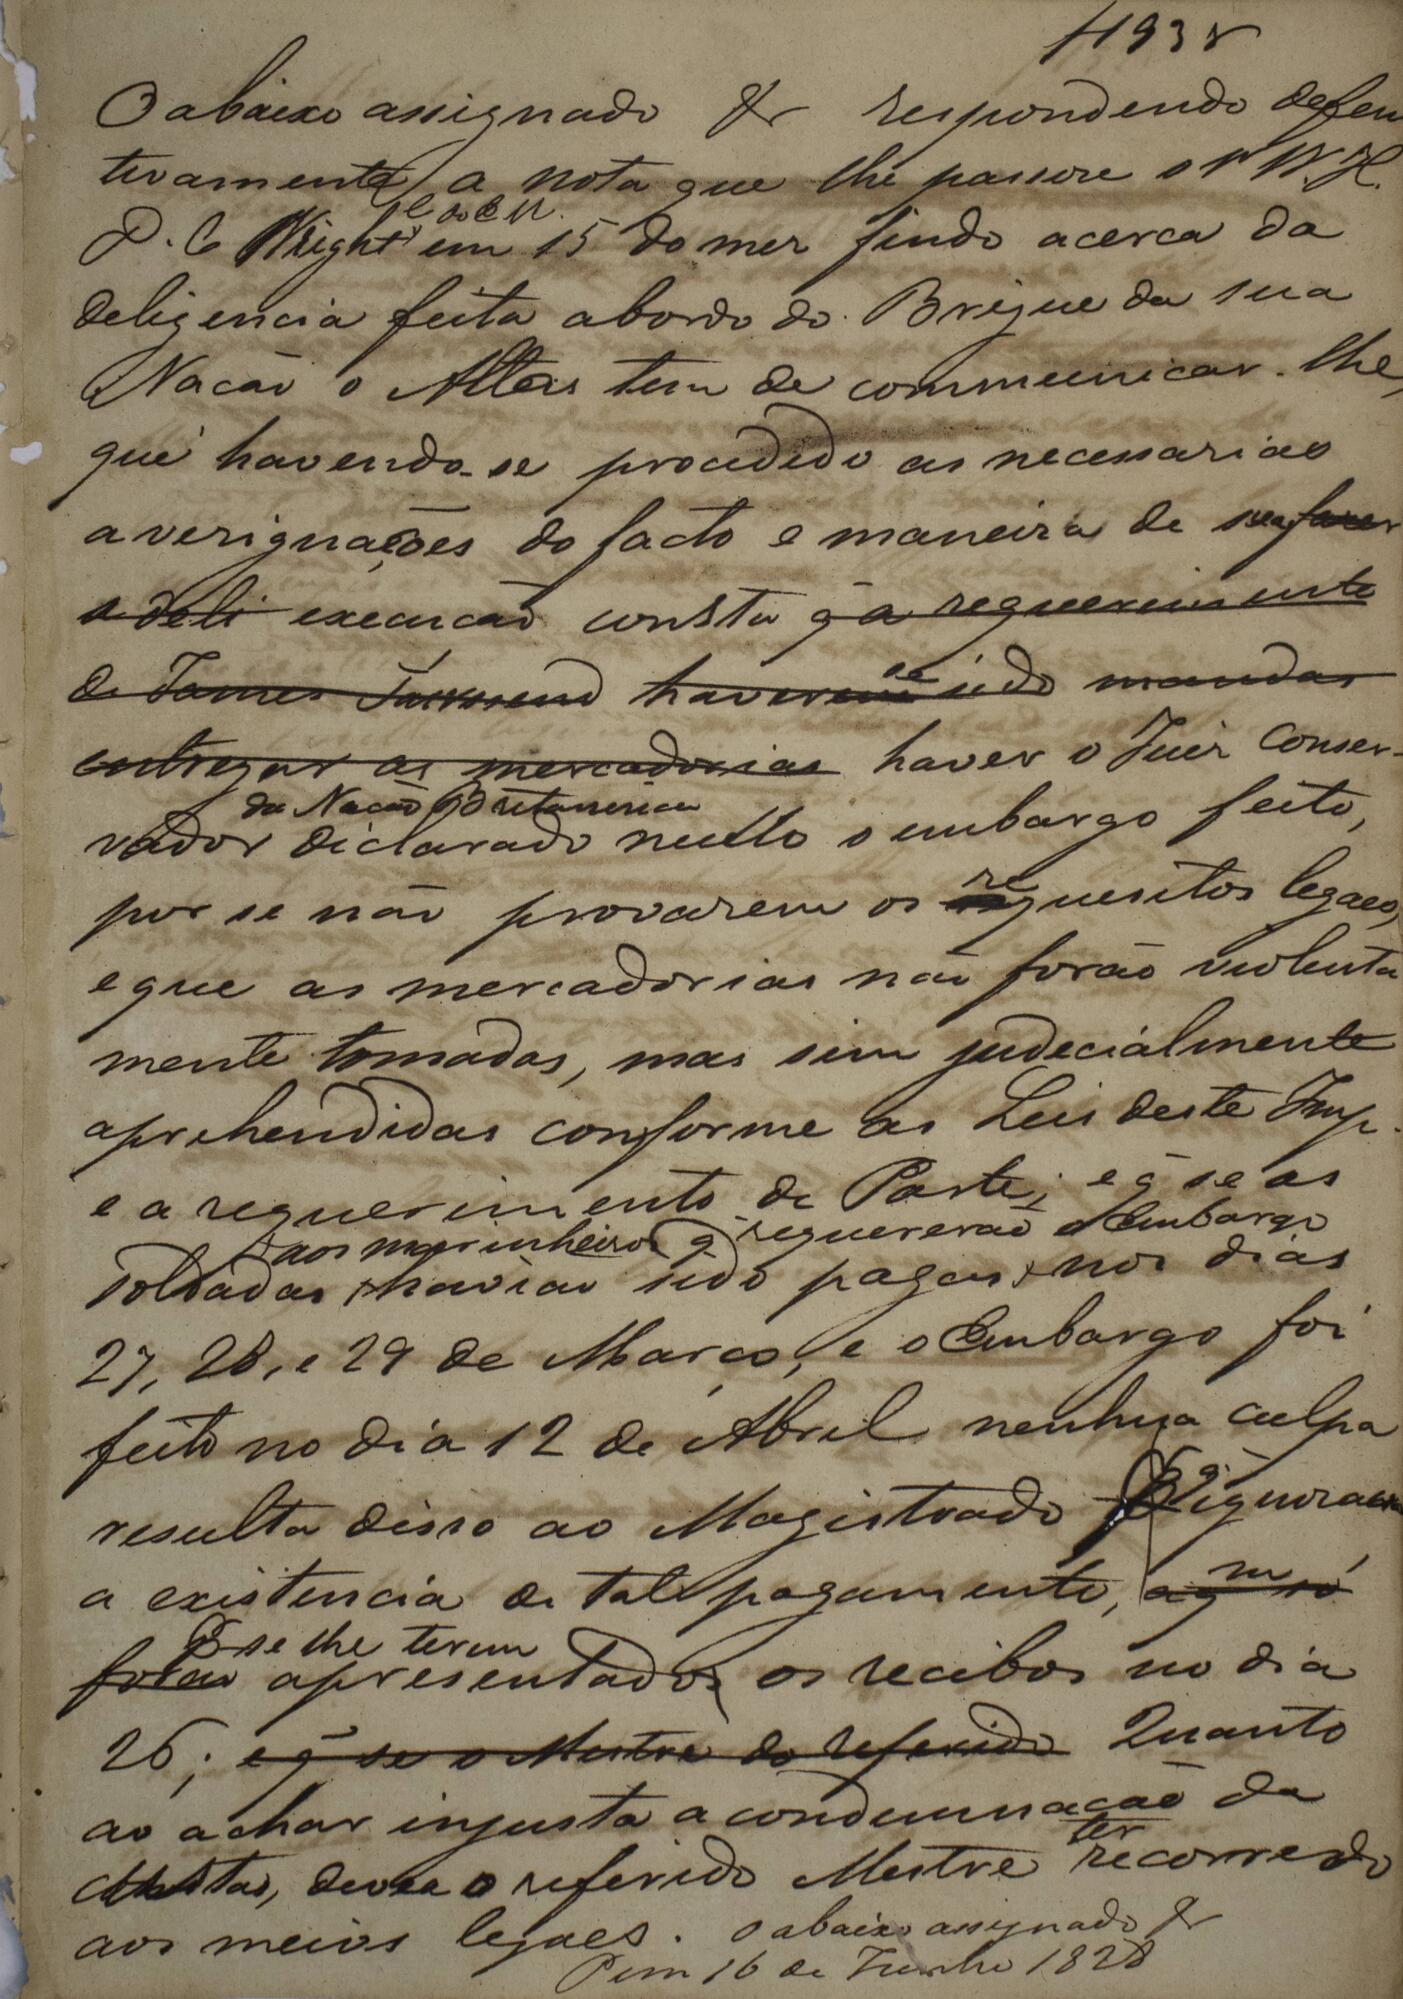 4938
O abaixo assignado &r respondendo defen
tivamente a nota que lhe passou o Sr W. H.
E. do E. U.
D. C. Wright em 15 do mez findo acerca da
deligencia feita abordo do Brigue da sua
Nação o Altas tem de communicar-lhe,
que havendo-se procedido as necessarias
averiguações do facto e maneira de sua fazer
a deli execução consta q̃ a requerimento
de James Townsend haverem se sido mandar
entregar as mercadorias haver o Juiz Conser-
da Nação Britannica
vador diclarado nullo o embargo feito,
por se não provarem os requesitos legaes,
e que as mercadorias não forão violenta
mente tomadas, mas sim judecialmente
aprehendidas conforme as Leis deste Imp.
e a requerimento de Parte; e q̃ se as
aos marinheiros q̃ requererão o Embargo
soldadas havião sido pagas nos dias
27, 28, e 29 de Março, e o Embargo foi
feito no dia 12 de Abril nenhũa culpa
resulta disso ao Magistrado q̃ ignorava
a existencia de tal pagamento, a qm só
se lhe terem
forão apresentados os recibos no dia
26; e q̃ se o Mestre do referido Quanto
ao achar injusta a condemnação da
ter
custas, devia o referido Mestre recorrido
aos meios legaes. O abaixo assignado &r
P em 16 de Junho 1828